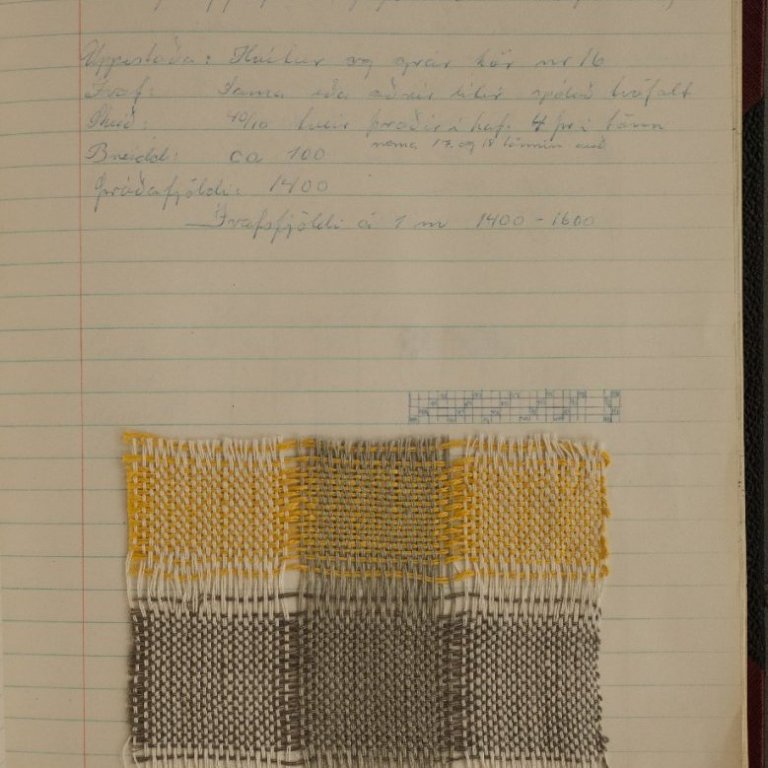 Uppistaða: Hvítur og grár hör nr 16
Ívaf: Sama eða aðrir litir spólað tvöfalt
Skeið: 40/10 tveir þræðir í haf. 4 þr í tönn
nema 17. og 18 tönnin auð
Breidd: ca 100
Þráðafjöldi: 1400
Ívafsfjöldi á 1 m 1400 - 1600